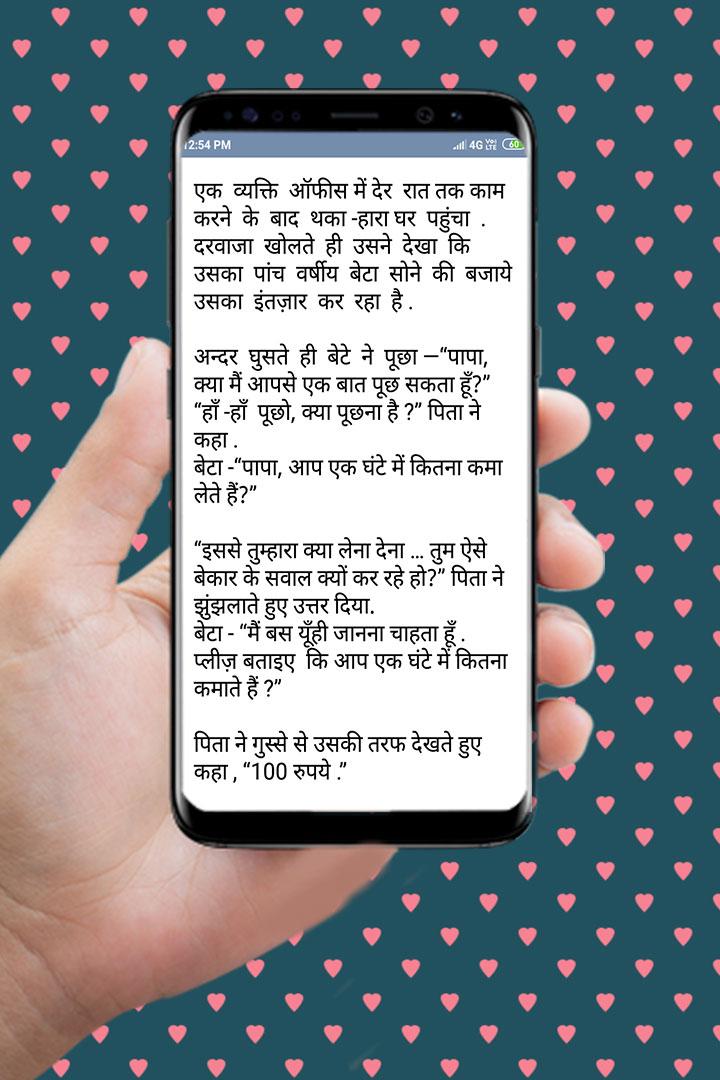 12:54 PM 4G VoLTE 60
एक व्यक्ति ऑफीस में देर रात तक काम
करने के बाद थका -हारा घर पहुंचा .
दरवाजा खोलते ही उसने देखा कि
उसका पांच वर्षीय बेटा सोने की बजाये
उसका इंतज़ार कर रहा है .
अन्दर घुसते ही बेटे ने पूछा —“पापा,
क्या मैं आपसे एक बात पूछ सकता हूँ?”
“हाँ -हाँ पूछो, क्या पूछना है ?” पिता ने
कहा .
बेटा -“पापा, आप एक घंटे में कितना कमा
लेते हैं?”
“इससे तुम्हारा क्या लेना देना ... तुम ऐसे
बेकार के सवाल क्यों कर रहे हो?” पिता ने
झुंझलाते हुए उत्तर दिया.
बेटा - “मैं बस यूँही जानना चाहता हूँ .
प्लीज़ बताइए कि आप एक घंटे में कितना
कमाते हैं ?”
पिता ने गुस्से से उसकी तरफ देखते हुए
कहा , “100 रुपये .”